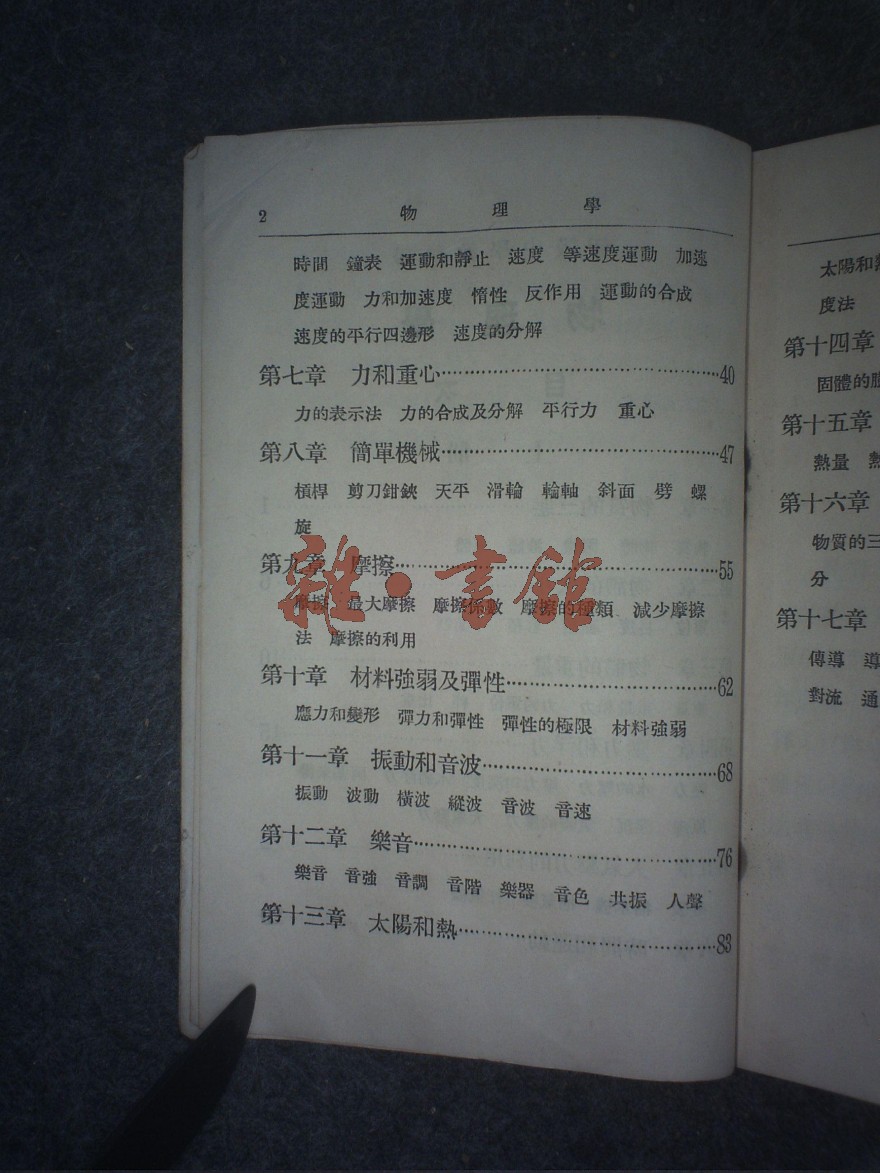 2 物理學
時間 鐘表 運動和靜止 速度 等速度運動 加速
度運動 力和加速度 惰性 反作用 運動的合成
速度的平行四邊形 速度的分解
第七章 力和重心……40
力的表示法 力的合成及分解 平行力 重心
第八章 簡單機械……47
槓桿 剪刀鉗鋏 天平 滑輪 輪軸 斜面 劈 螺
旋
第九章 摩擦……55
摩擦 最大摩擦 摩擦係數 摩擦的種類 減少摩擦
法 摩擦的利用
第十章 材料強弱及彈性……62
應力和變形 彈力和彈性 彈性的極限 材料強弱
第十一章 振動和音波……68
振動 波動 橫波 縱波 音波 音速
第十二章 樂音……76
樂音 音強 音調 音階 樂器 音色 共振 人聲
第十三章 太陽和熱……83
雜·書館
太陽和
度法
第十四章
固體的
第十五章
熱量
第十六章
物質的三
分
第十七章
傳導
對流 通